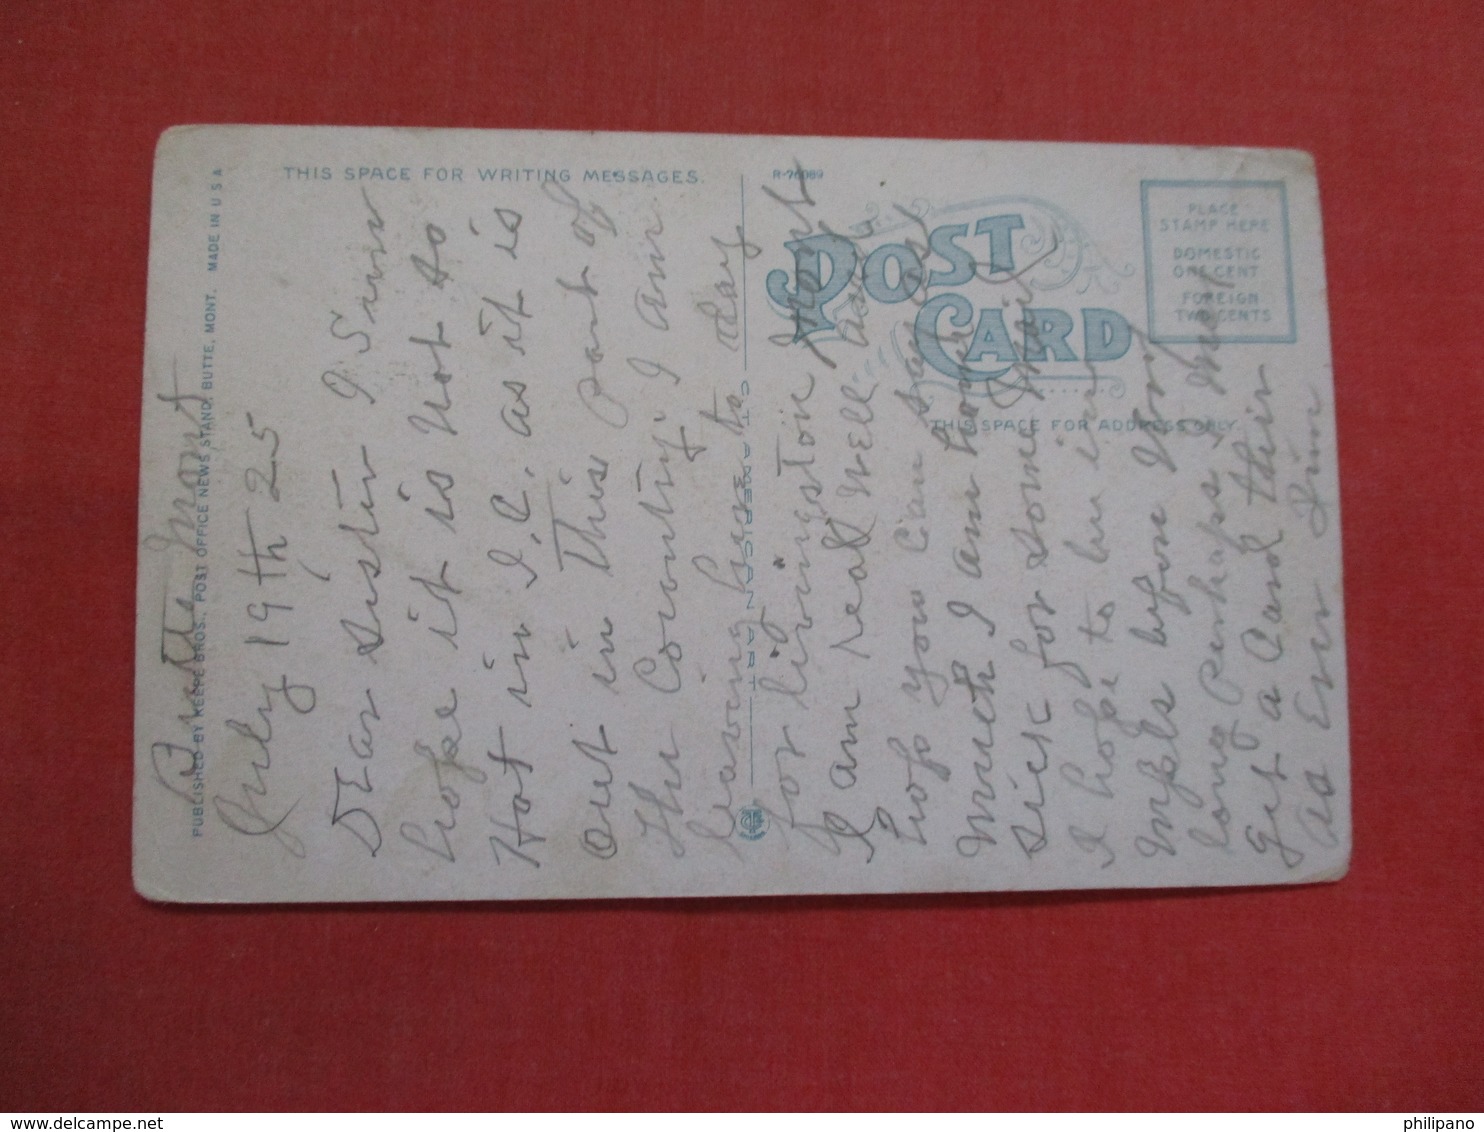 THIS SPACE FOR WRITING MESSAGES.
R-76089
POST CARD
PLACE
STAMP HERE
DOMESTIC
ONE CENT
FOREIGN
TWO CENTS
THIS SPACE FOR ADDRESS ONLY.
PUBLISHED BY KEEFE BROS., POST OFFICE NEWS STAND, BUTTE, MONT. MADE IN U S A
C.T. AMERICAN ART
Butte Mont
July 19th 25
Dear Sister I Sure
hope it is Not so
Hot in I.C. as it is
out in This part of
the Country. I am
leaving here to day
for Livingston Mont
I am real well and
hope you can say as
much I am home
sick for some mail
I hope to be in
Mpls before very
long perhaps I might
get a Card their
as Ever Jim
philipano
www.delcampe.net